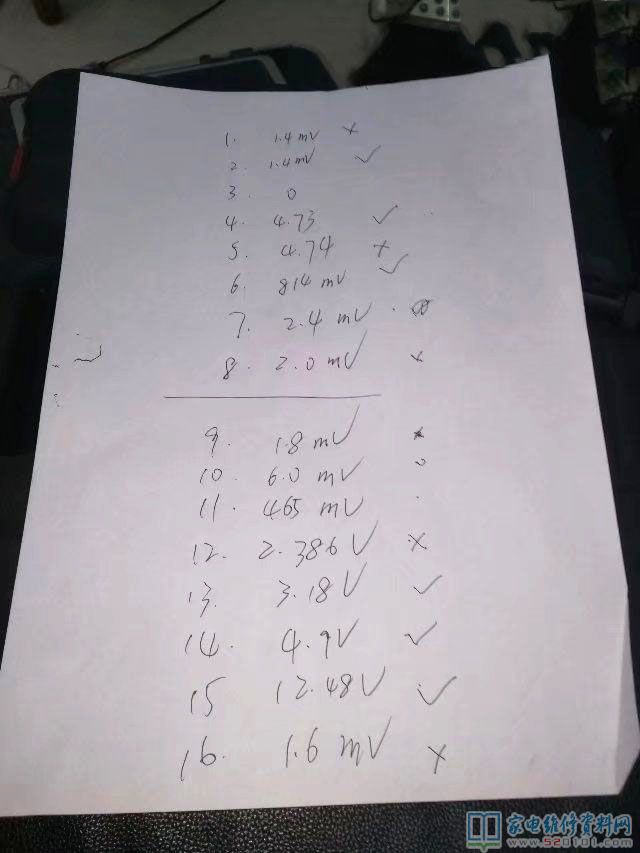 1. 1.4 mV ×
2. 1.4mV ✓
3. 0
4. 4.73 ✓
5. 4.74 ×
6. 814 mV ✓
7. 2.4 mV
8. 2.0 mV ×
9. 1.8 mV ×
10. 6.0 mV 0
11. 465 mV
12. 2.386 V ×
13. 3.18 V ✓
14. 4.9V ✓
15 12.48V ✓
16. 1.6 mV ×
家电维修资料网
www.520101.com